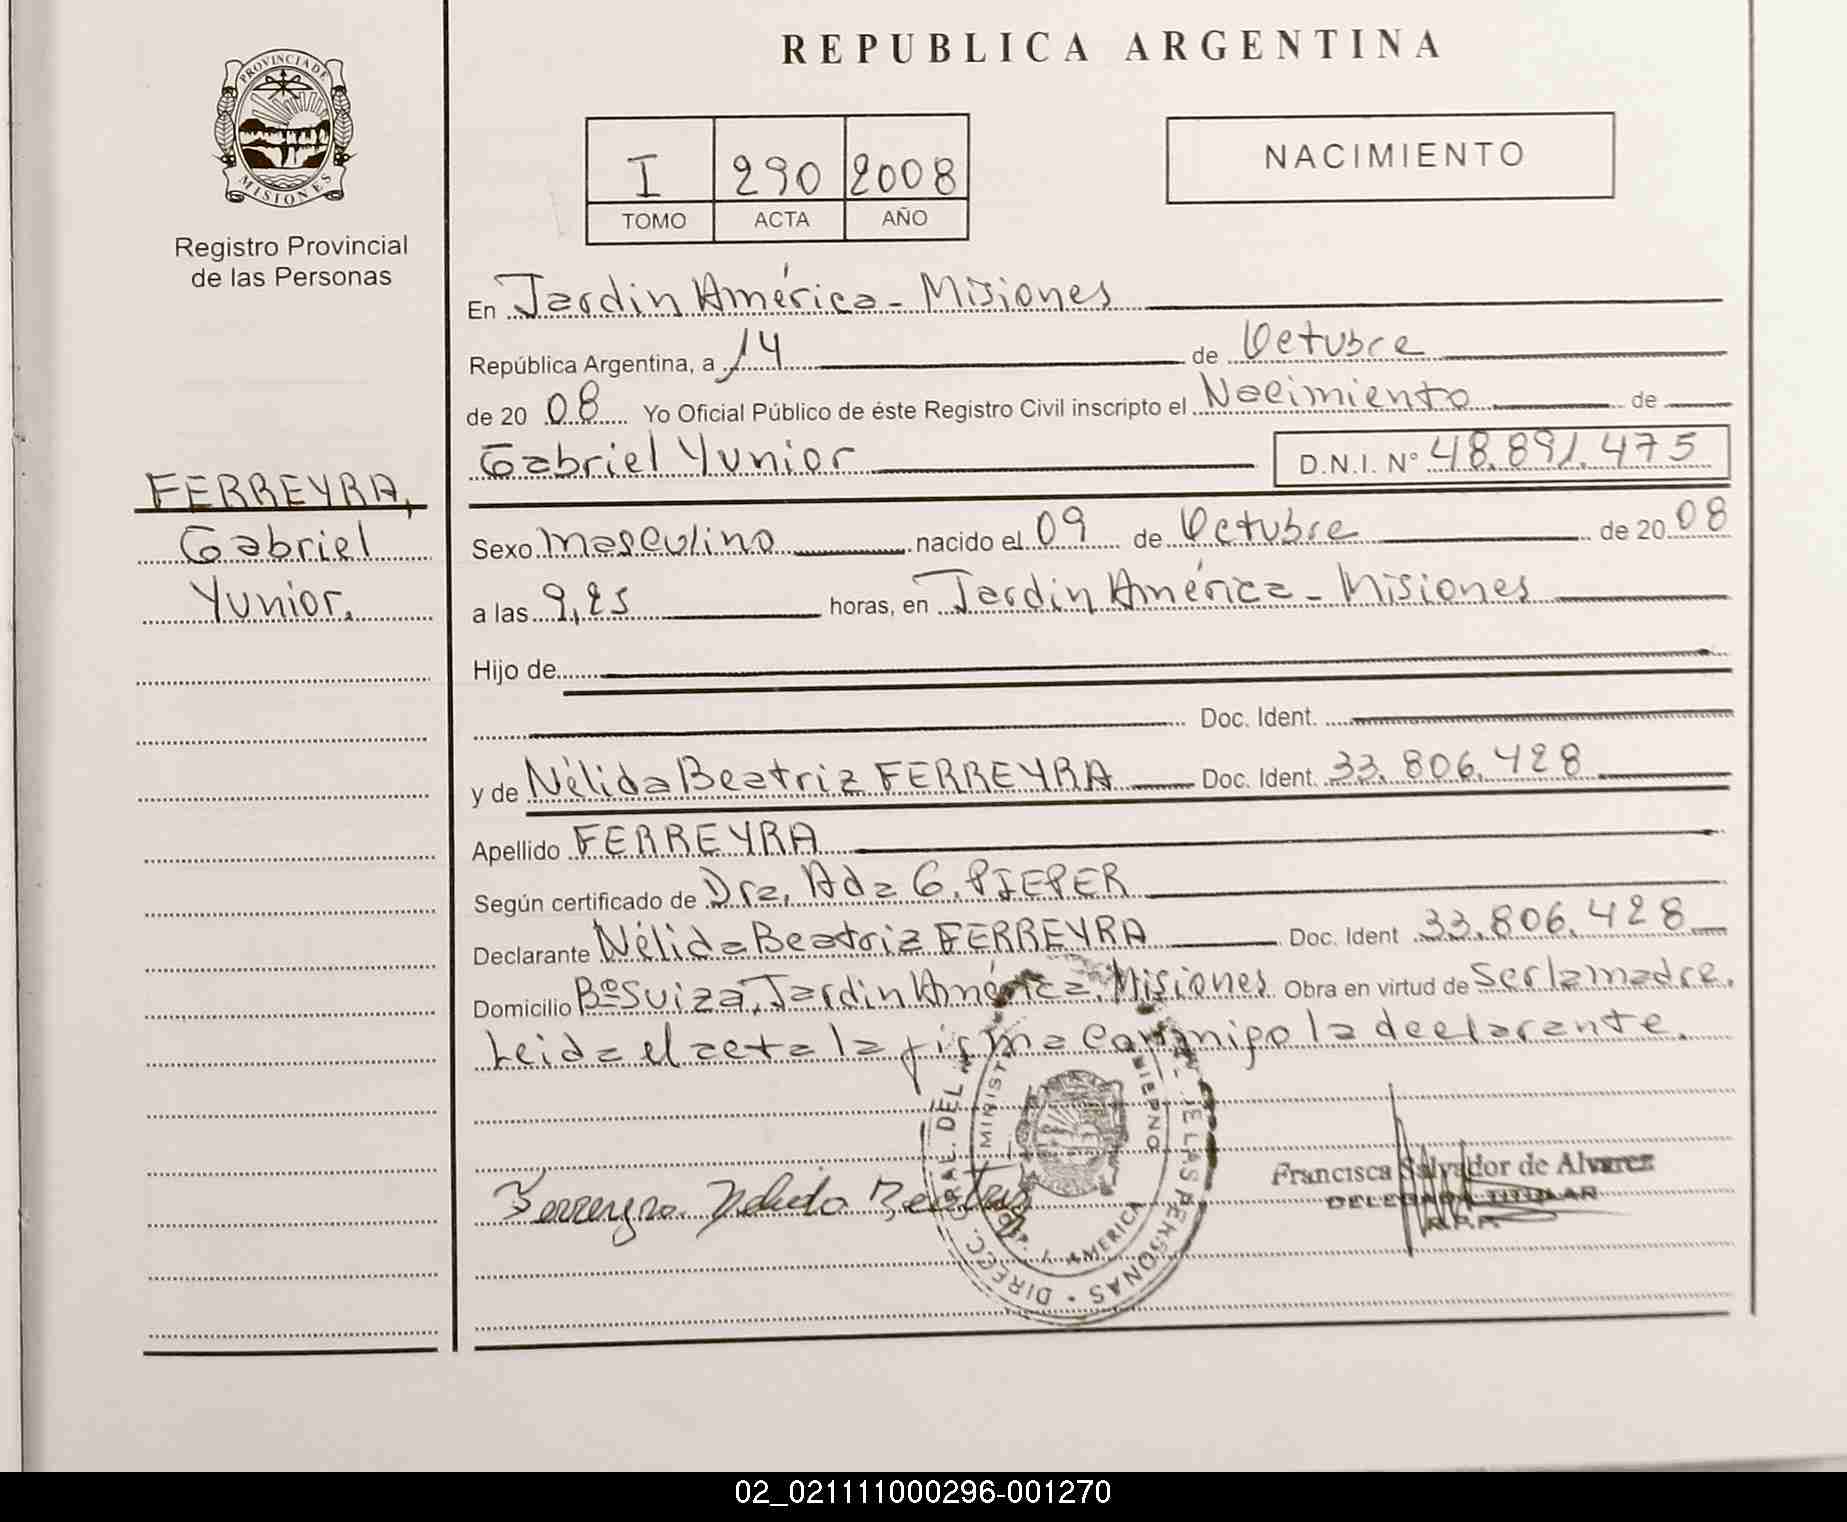 REPUBLICA ARGENTINA
PROVINCIA DE
MISIONES
Registro Provincial
de las Personas
I 290 2008
TOMO ACTA AÑO
NACIMIENTO
FERREYRA,
Gabriel
Yunior.
En Jardin América - Misiones
República Argentina, a 14 de Octubre
de 20 08 Yo Oficial Público de éste Registro Civil inscripto el Nacimiento de
Gabriel Yunior D.N.I. Nº 48.891.475
Sexo masculino nacido el 09 de Octubre de 20 08
a las 9,25 horas, en Jardin América - Misiones
Hijo de
Doc. Ident.
y de Nélida Beatriz FERREYRA Doc. Ident. 33.806.428
Apellido FERREYRA
Según certificado de Dra. Ada G. PIEPER
Declarante Nélida Beatriz FERREYRA Doc. Ident 33.806.428
Domicilio Bº Suiza, Jardin América, Misiones Obra en virtud de ser la madre.
Leida el acta la firma conmigo la declarante.
Ferreyra Nelida Beatriz
DIREC. GRAL. DEL DE LAS PERSONAS
MINIST
AMERICA
Francisca Salvador de Alvarez
DELEGADA TITULAR
R.P.P.
02_021111000296-001270